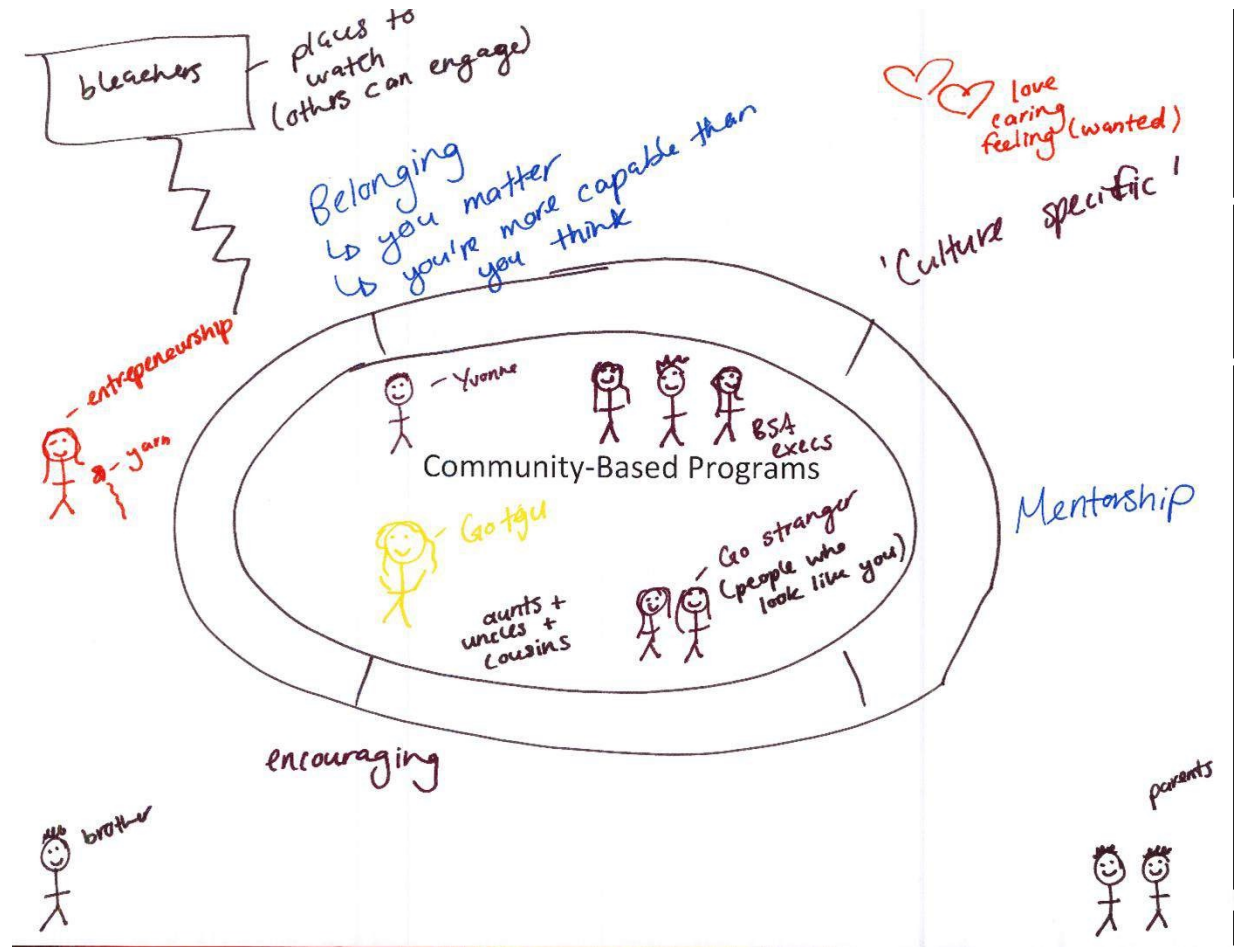 bleachers
- places to
watch
(others can engage)
love
caring
feeling (wanted)
Belonging
↳ you matter
↳ you're more capable than
you think
'Culture specific'
- entrepeneurship
- yarn
- Yvonne
BSA
execs
Community-Based Programs
Mentorship
- Go stranger
(people who
look like you)
aunts +
uncles +
cousins
encouraging
brother
parents